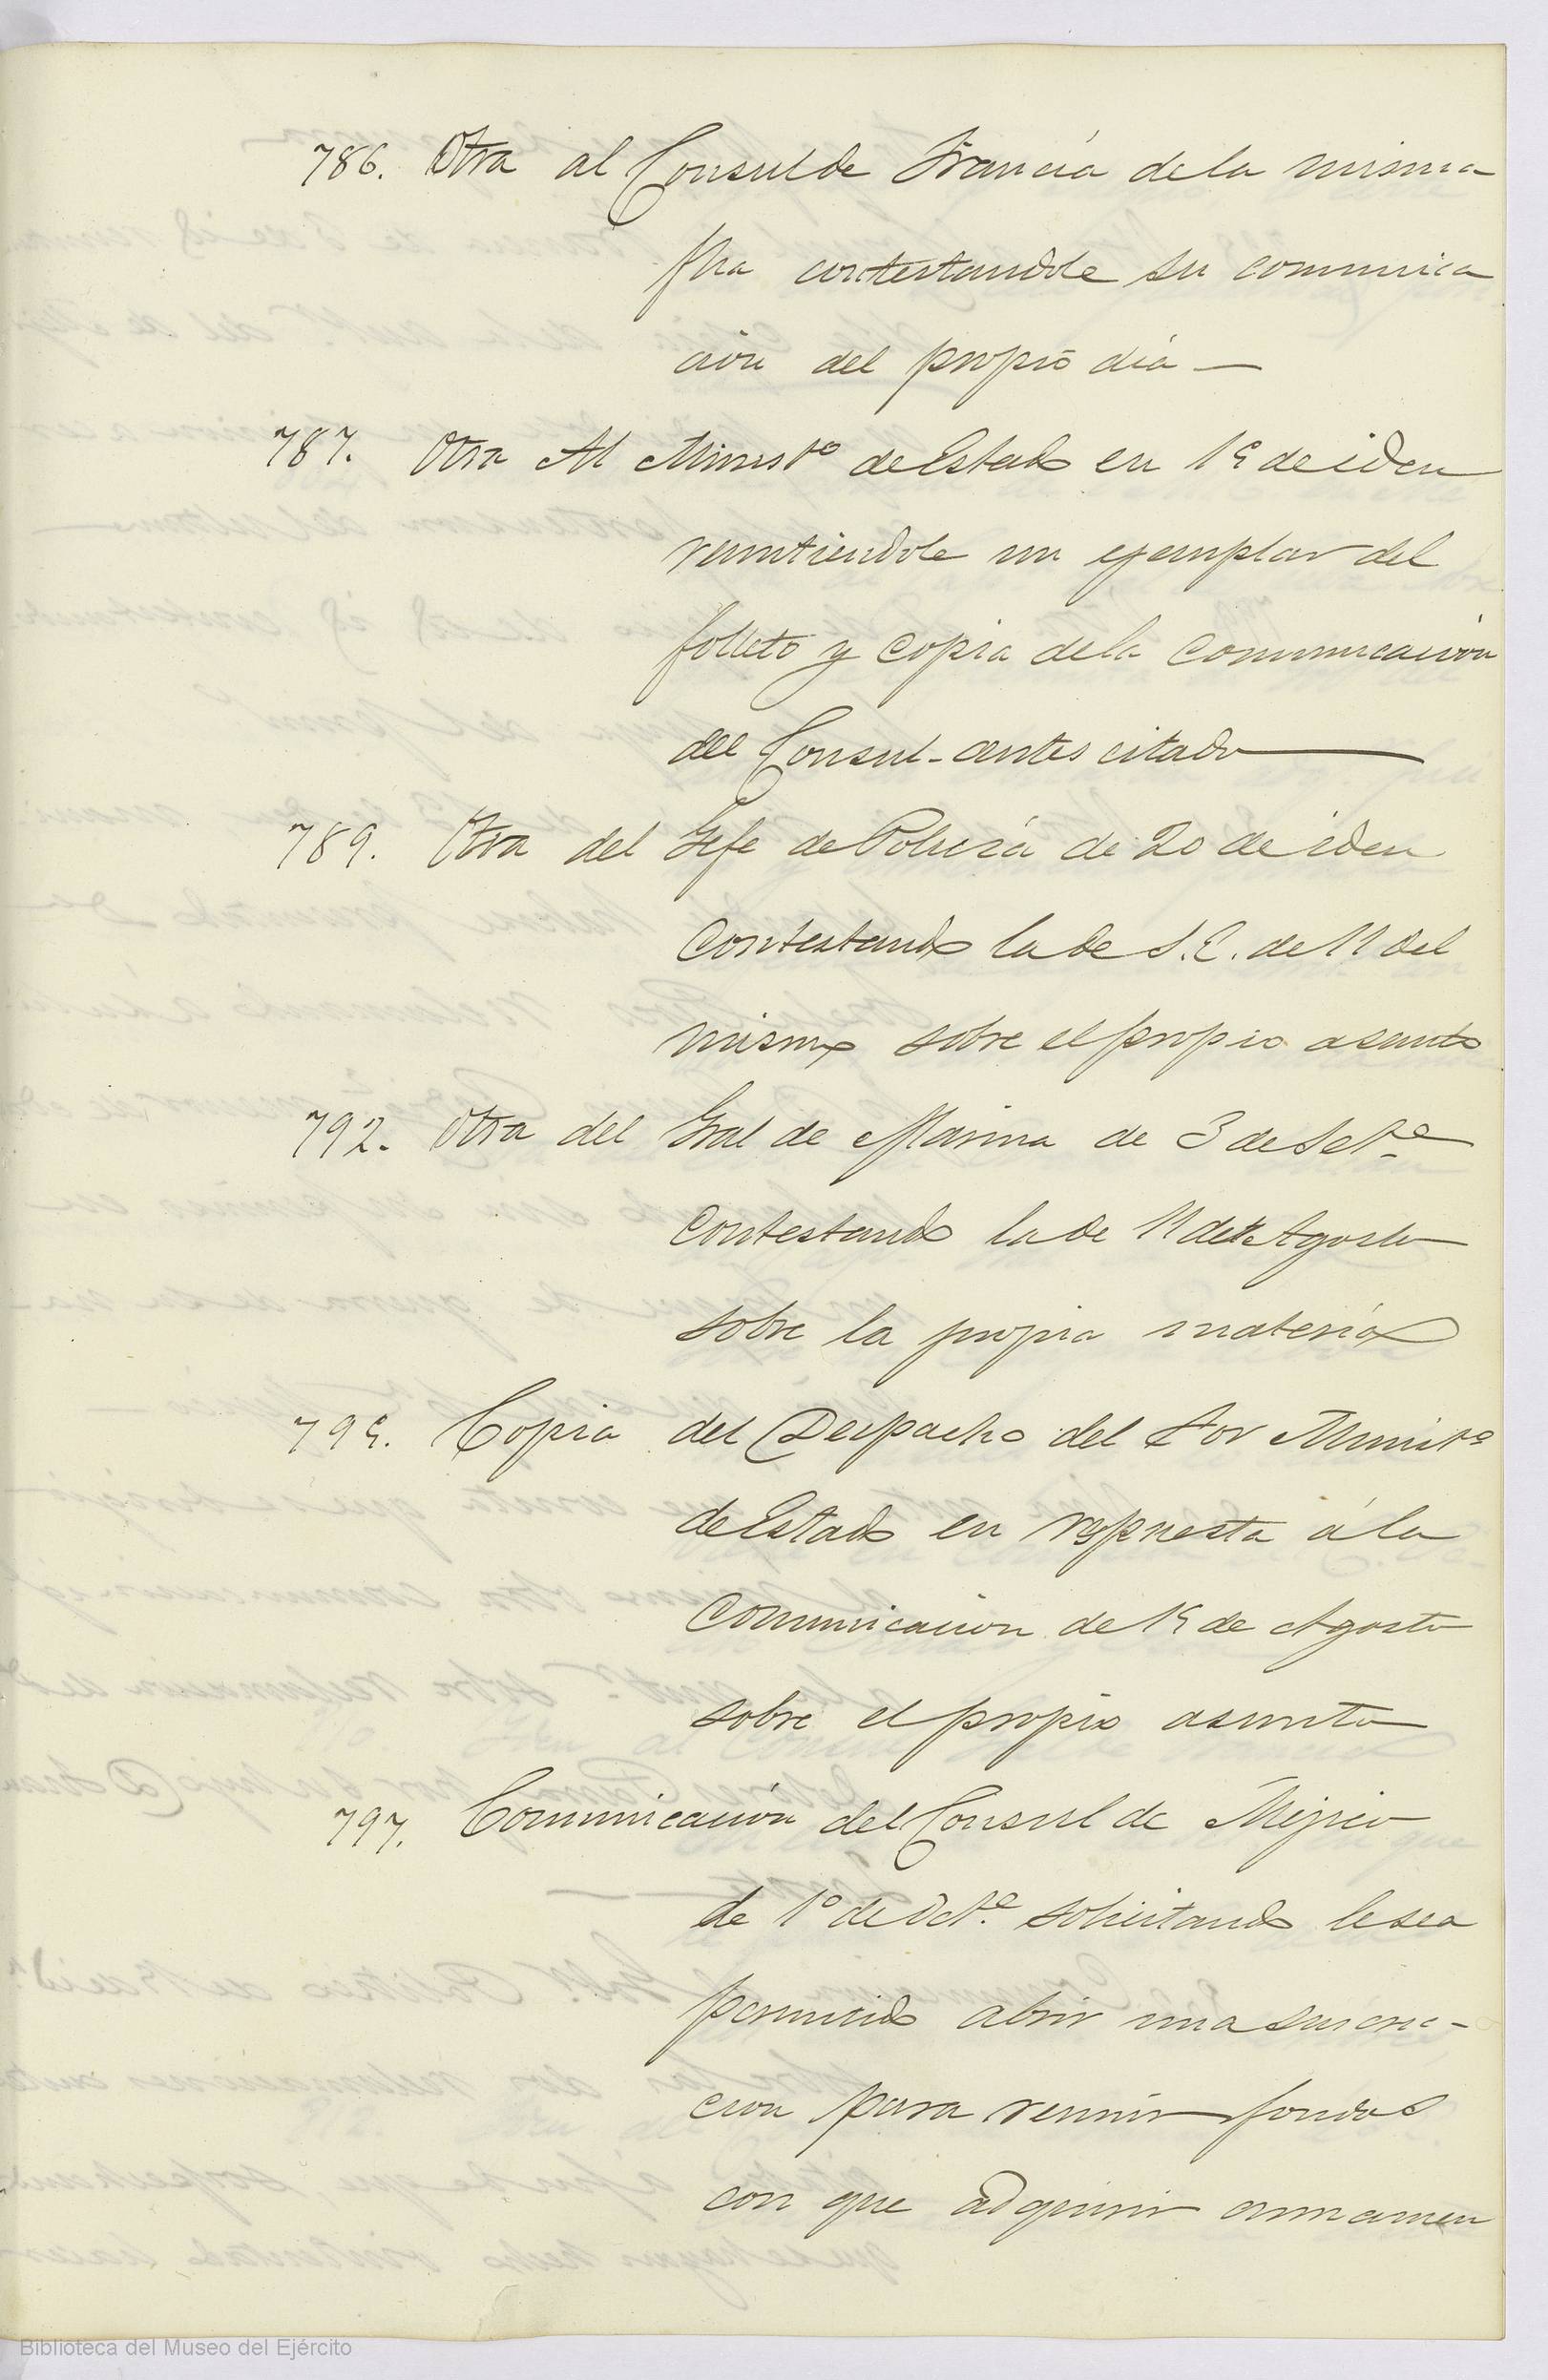 786. Otra al Consul de Francia de la misma
fha contestandole su comunica
cion del propio dia —
787. Otra Al Minist.º de Estado en 15 de iden
remitiendole un ejemplar del
folleto y copia de la comunicacion
del Consul antes citado —
789. Otra del Gefe de Policia de 20 de iden
contestando la de S.E. de 11 del
mismo sobre el propio asunto
792. Otra del Gral de Marina de 3 de Set.e
contestando la de 11 de Agosto
sobre la propia materia
795. Copia del Despacho del Sor Minist.º
de Estado en respuesta á la
comunicacion de 15 de Agosto
sobre el propio asunto
797. Comunicacion del Consul de Mejico
de 1º de Oct.e solicitando le sea
permitido abrir una suscric-
cion para reunir fondos
con que adquirir armamen
Biblioteca del Museo del Ejército